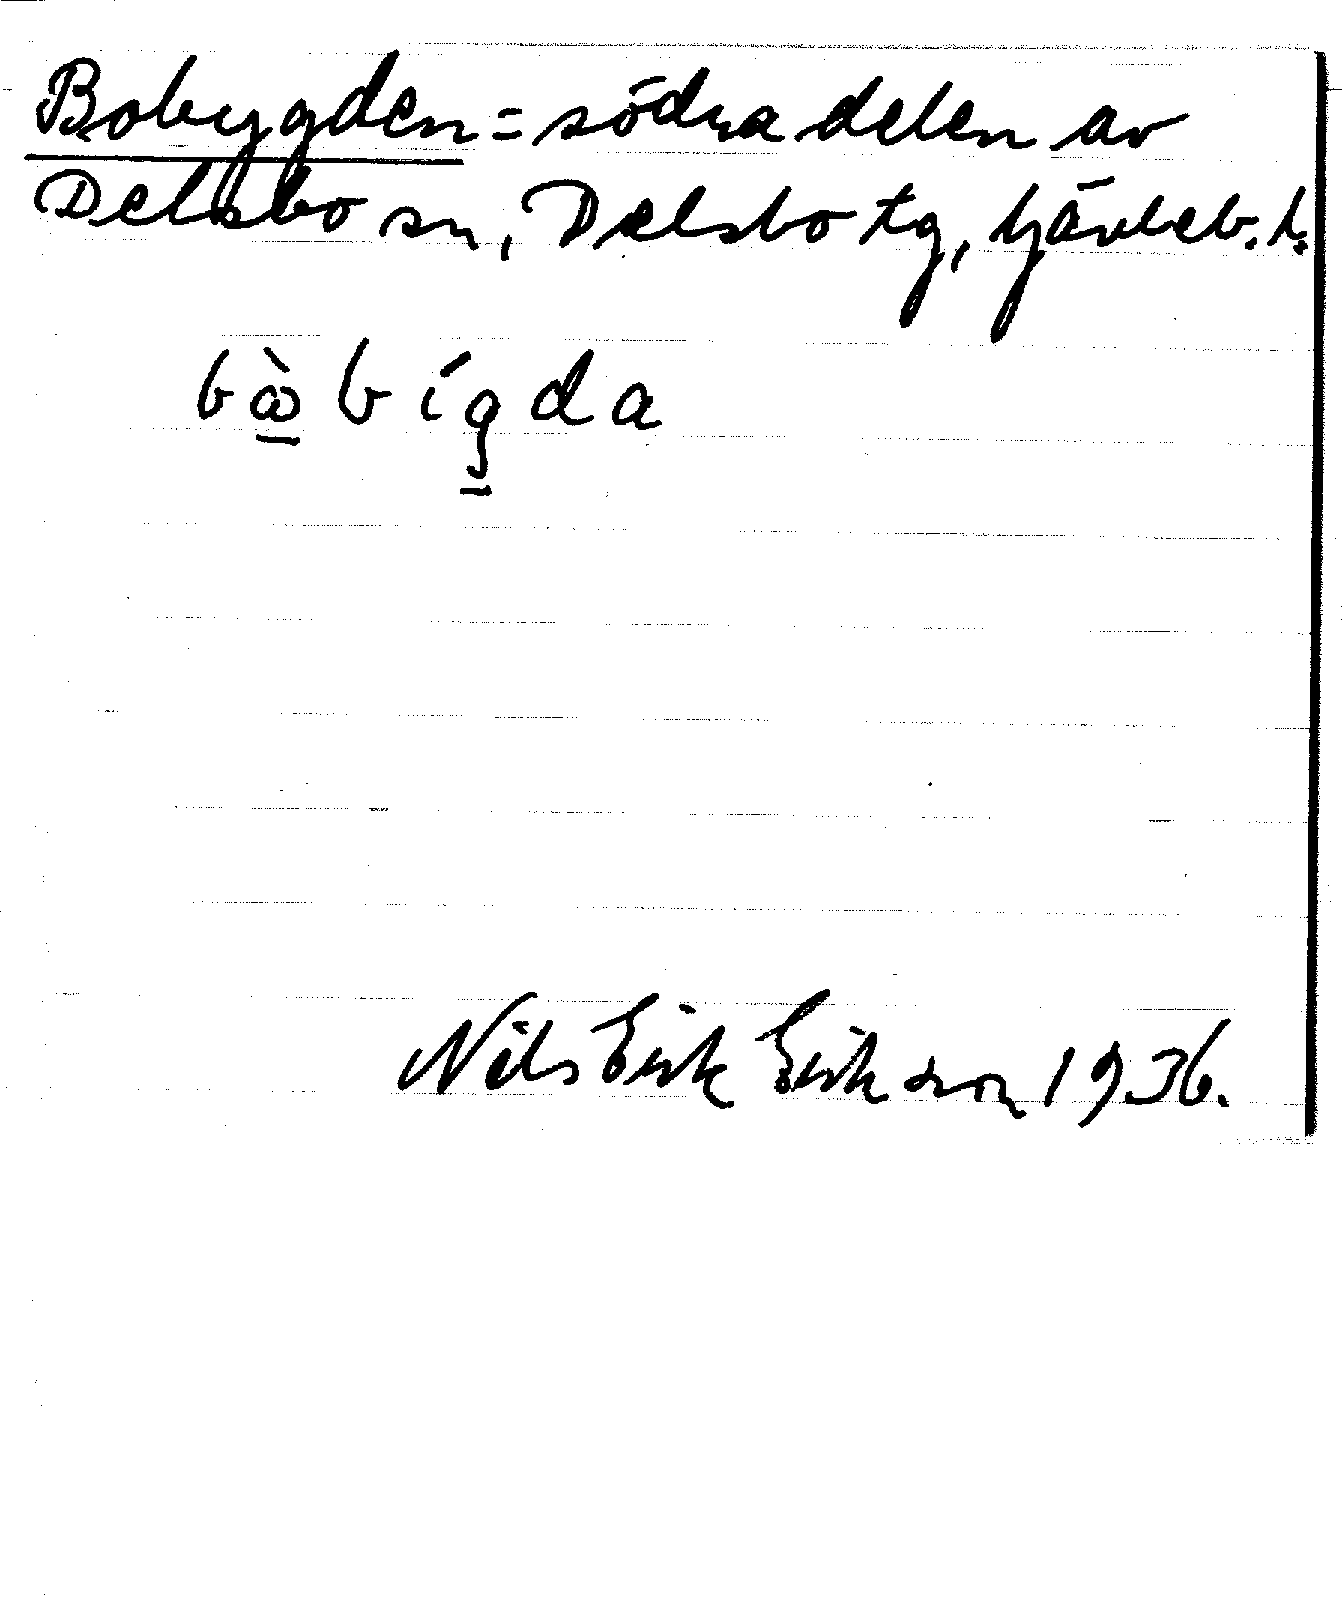 Bobygden = södra delen av
Delsbo sn, Delsbo tg, Gävleb. l.
bὼbígda
Nils Erik Erikson 1936.